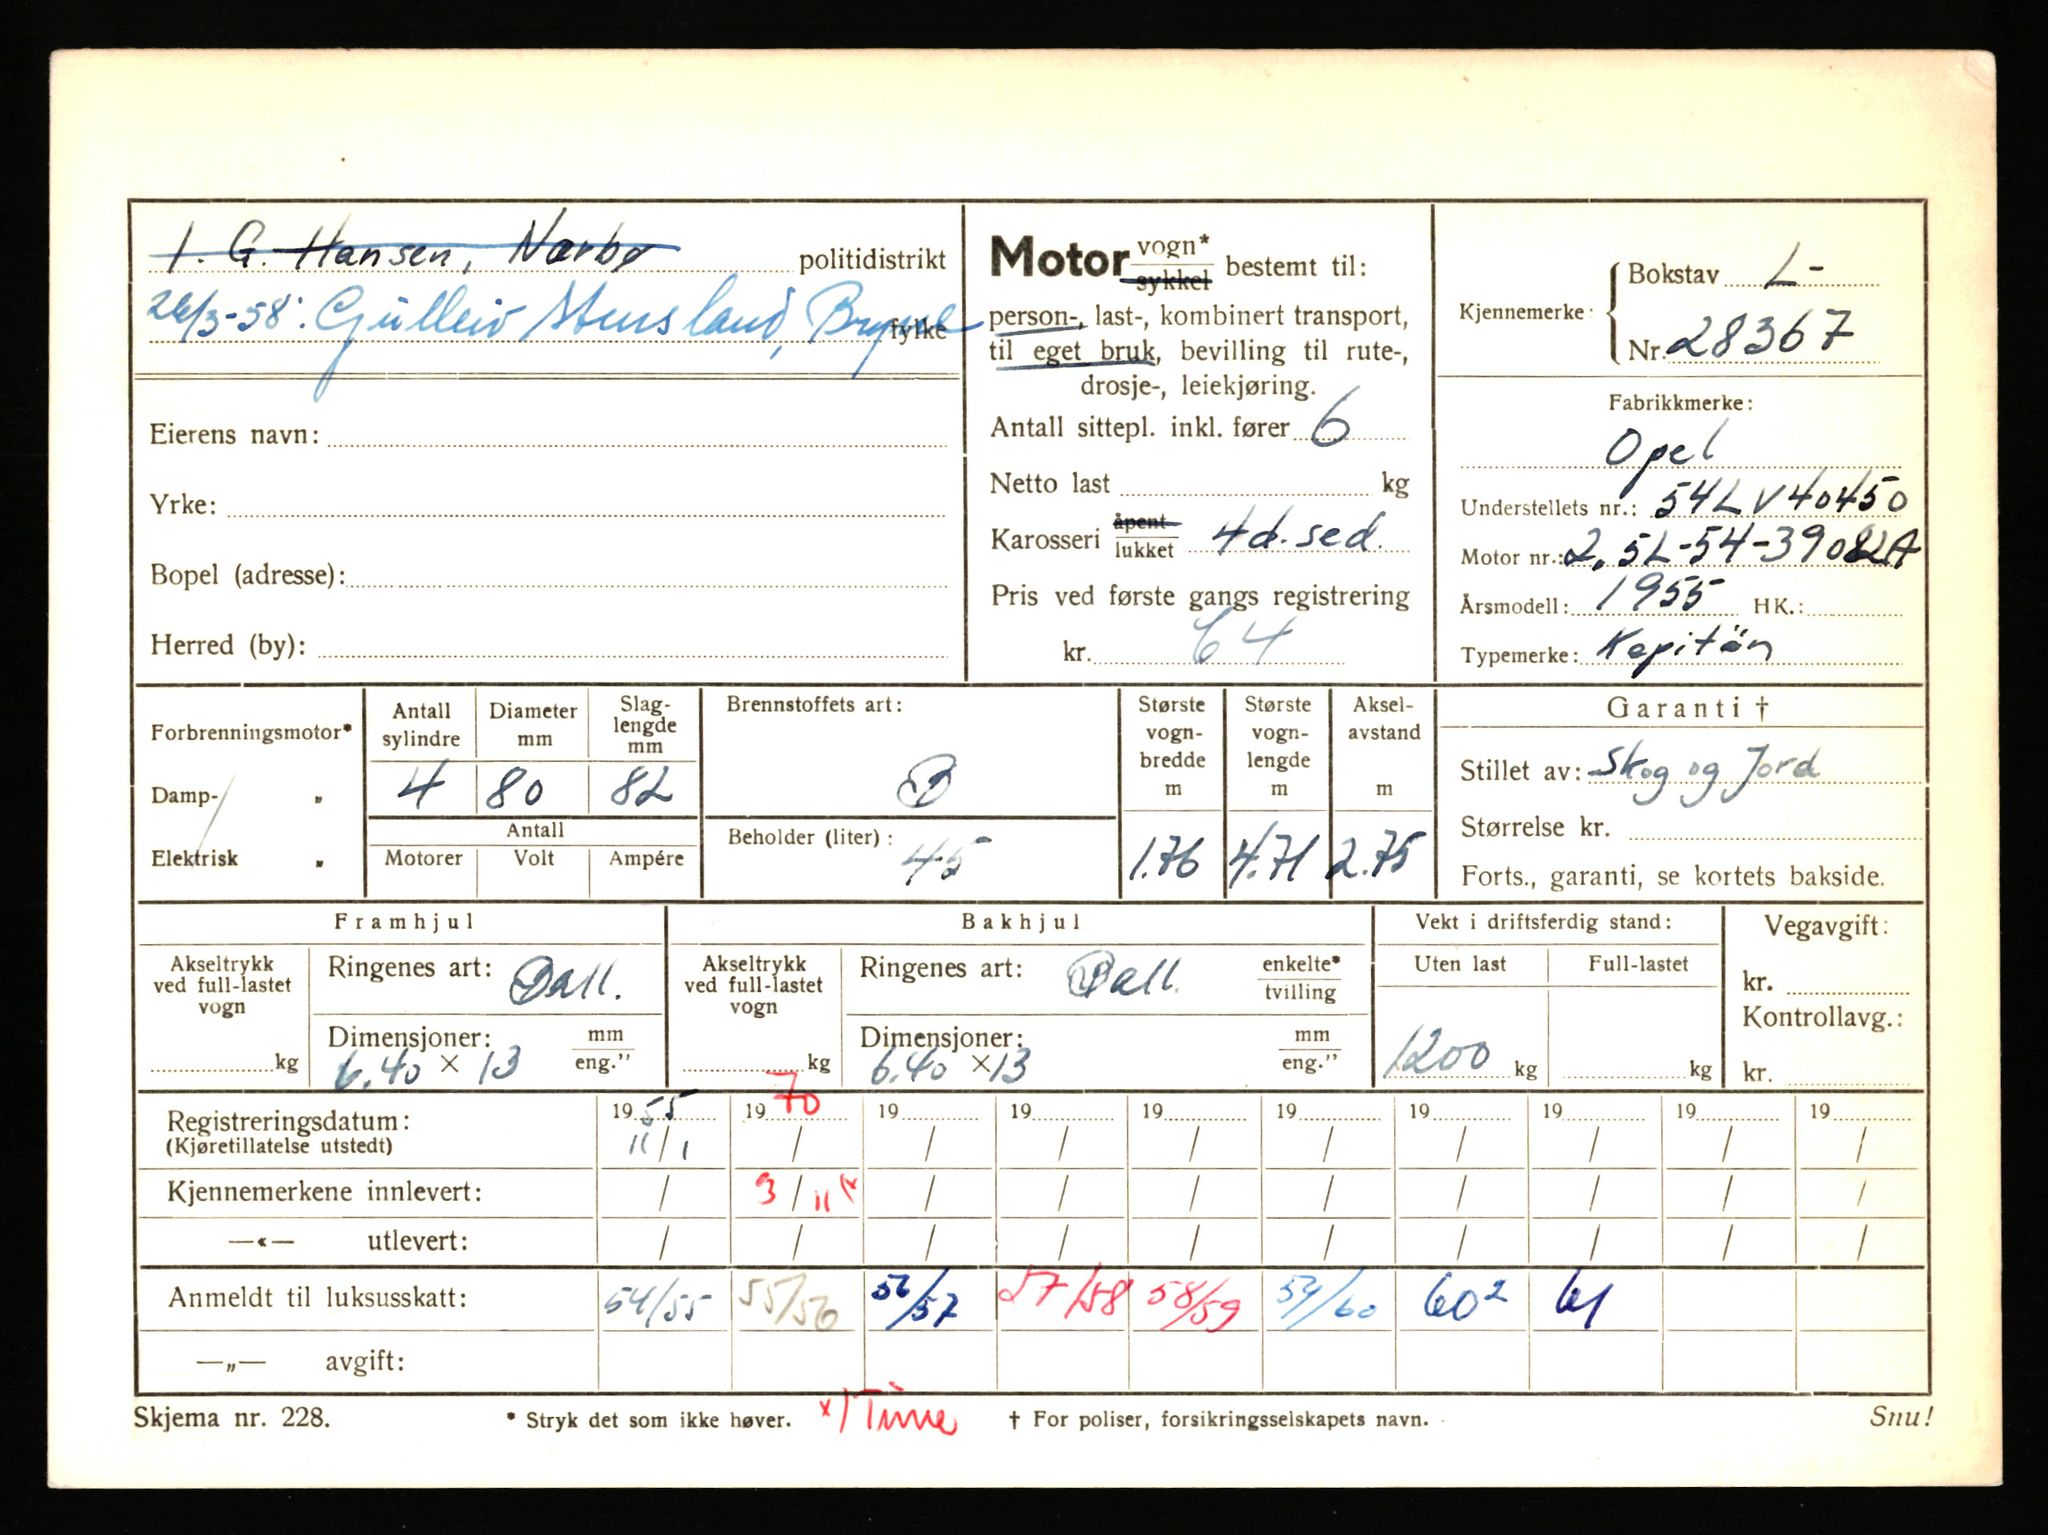 I. G. Hansen, Nærbø politidistrikt
26/3-58: Gulleiv Stensland, Bryne fylke
Eierens navn:
Yrke:
Bopel (adresse):
Herred (by):
Motor vogn* / sykkel bestemt til:
person-, last-, kombinert transport,
til eget bruk, bevilling til rute-,
drosje-, leiekjøring.
Antall sittepl. inkl. fører 6
Netto last kg
Karosseri åpent / lukket 4d. sed.
Pris ved første gangs registrering
kr. 64
Kjennemerke: Bokstav L-
Nr. 28367
Fabrikkmerke:
Opel
Understellets nr.: 54LV40450
Motor nr.: 2,5L-54-39082A
Årsmodell: 1955 HK.:
Typemerke: Kapitän
Forbrenningsmotor*
Damp- „
Elektrisk „
Antall sylindre Diameter mm Slag-lengde mm
4 80 82
Antall
Motorer Volt Ampére
Brennstoffets art:
B
Beholder (liter):
45
Største vogn-bredde m
1.76
Største vogn-lengde m
4.71
Aksel-avstand m
2.75
Garanti †
Stillet av: Skog og Jord
Størrelse kr.
Forts., garanti, se kortets bakside.
Framhjul
Akseltrykk ved full-lastet vogn
kg
Ringenes art: Ball.
Dimensjoner: mm / eng."
6.40 × 13
Bakhjul
Akseltrykk ved full-lastet vogn
kg
Ringenes art: Ball. enkelte* / tvilling
Dimensjoner: mm / eng."
6.40 × 13
Vekt i driftsferdig stand:
Uten last Full-lastet
1200 kg kg
Vegavgift:
kr.
Kontrollavg.:
kr.
Registreringsdatum: 1955 1970 19 19 19 19 19 19 19 19
(Kjøretillatelse utstedt) 11/1 / / / / / / / / /
Kjennemerkene innlevert: / 3/11 x / / / / / / / /
—«— utlevert: / / / / / / / / / /
Anmeldt til luksusskatt: 54/55 55/56 56/57 57/58 58/59 59/60 60² 61
—„— avgift:
Skjema nr. 228. * Stryk det som ikke høver. x) Time † For poliser, forsikringsselskapets navn. Snu!